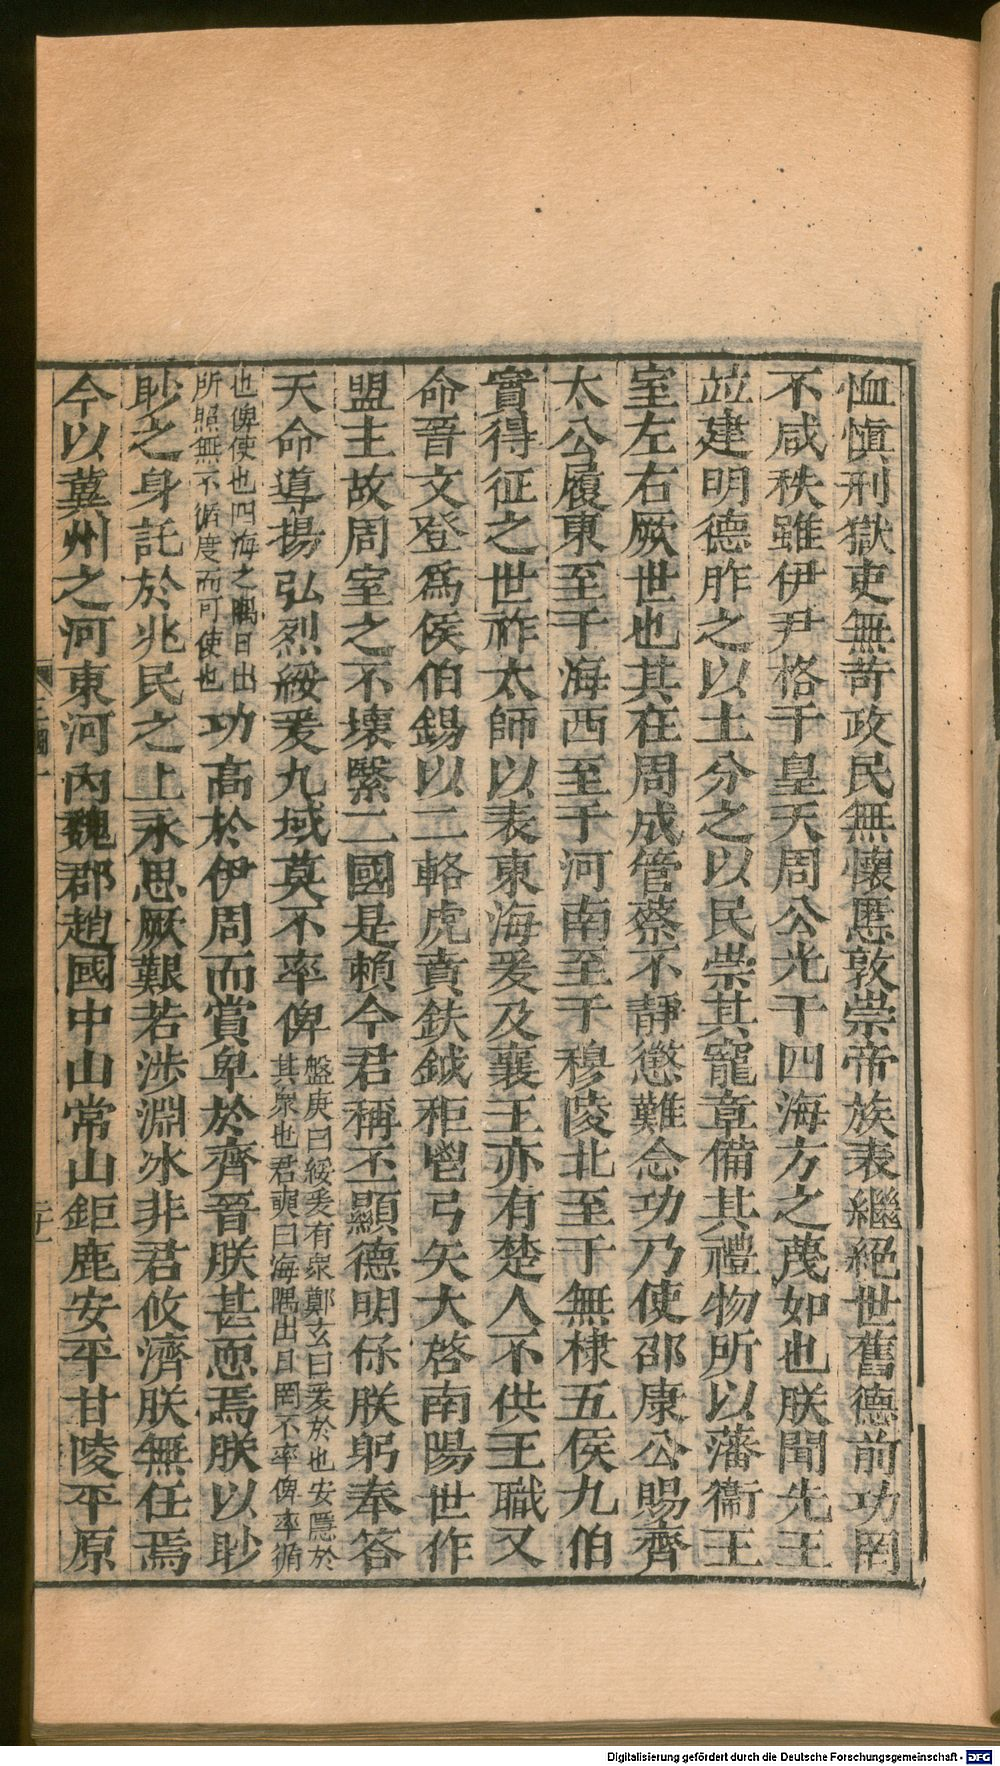 恤慎刑獄吏無苛政民無懷慝敦崇帝族表繼絕世舊德前功罔
不咸秩雖伊尹格于皇天周公光于四海方之蔑如也朕聞先王
並建明德胙之以土分之以民崇其寵章備其禮物所以藩衞王
室左右厥世也其在周成管蔡不靜懲難念功乃使邵康公賜齊
太公履東至于海西至于河南至于穆陵北至于無棣五侯九伯
實得征之世祚太師以表東海爰及襄王亦有楚人不供王職又
命晉文登爲侯伯錫以二輅虎賁鈇鉞秬鬯弓矢大啓南陽世作
盟主故周室之不壞繄二國是賴今君稱丕顯德明保朕躬奉答
天命導揚弘烈綏爰九域莫不率俾盤庚曰綏爰有衆鄭玄曰爰於也安隱於
其衆也君奭曰海隅出日罔不率俾率循
也俾使也四海之隅日出
所照無不循度而可使也功高於伊周而賞卑於齊晉朕甚恧焉朕以眇
眇之身託於兆民之上永思厥艱若涉淵冰非君攸濟朕無任焉
今以冀州之河東河內魏郡趙國中山常山鉅鹿安平甘陵平原
Digitalisierung gefördert durch die Deutsche Forschungsgemeinschaft - DFG